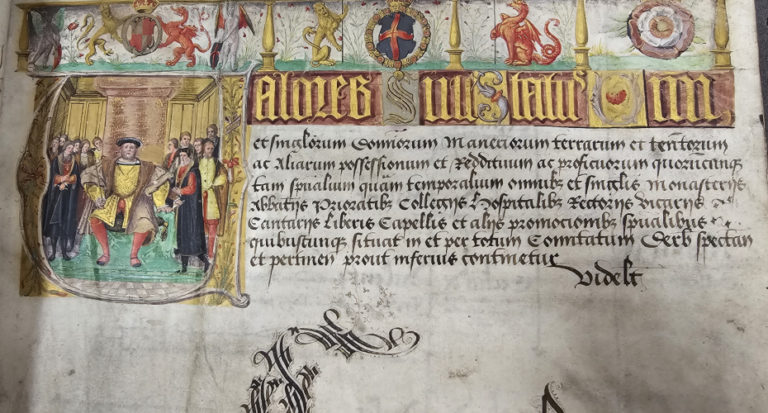 Valores Sive Status Omm
et singlorum Domiorum Maneciorum terrarum et tentorum
ac Aliarum possessionum et Reddituum ac proficuorum quorumcunq
tam spualium quam temporalium omnibz et singlis monasterijs
Abbatijs Prioratibz Collegijs Hospitalibz Rectorijs vicarijs
Cantarijs Liberis Capellis et alijs promocionibz spualibus
quibuscunqz situat in et per totum Comitatum Derb spectan
et pertinen prout inferius continetur
Videlt